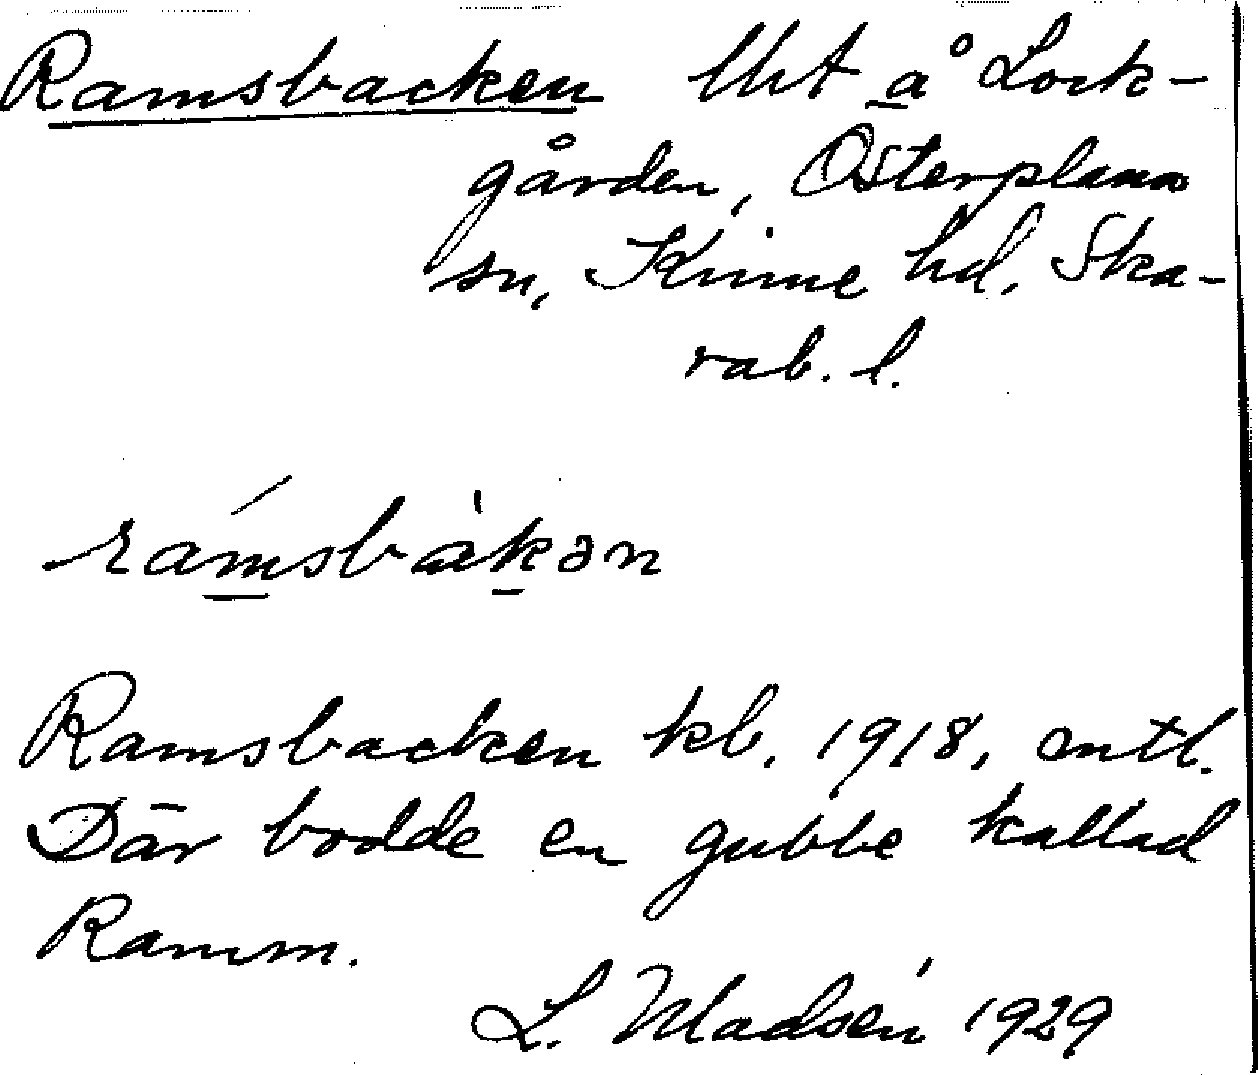 Ramsbacken lht å Lock-
gården, Österplana
sn, Kinne hd, Ska-
rab. l.
ramsbakən
Ramsbacken kb. 1918, mtl.
Där bodde en gubbe kallad
Ramm.
L. Madsén 1929